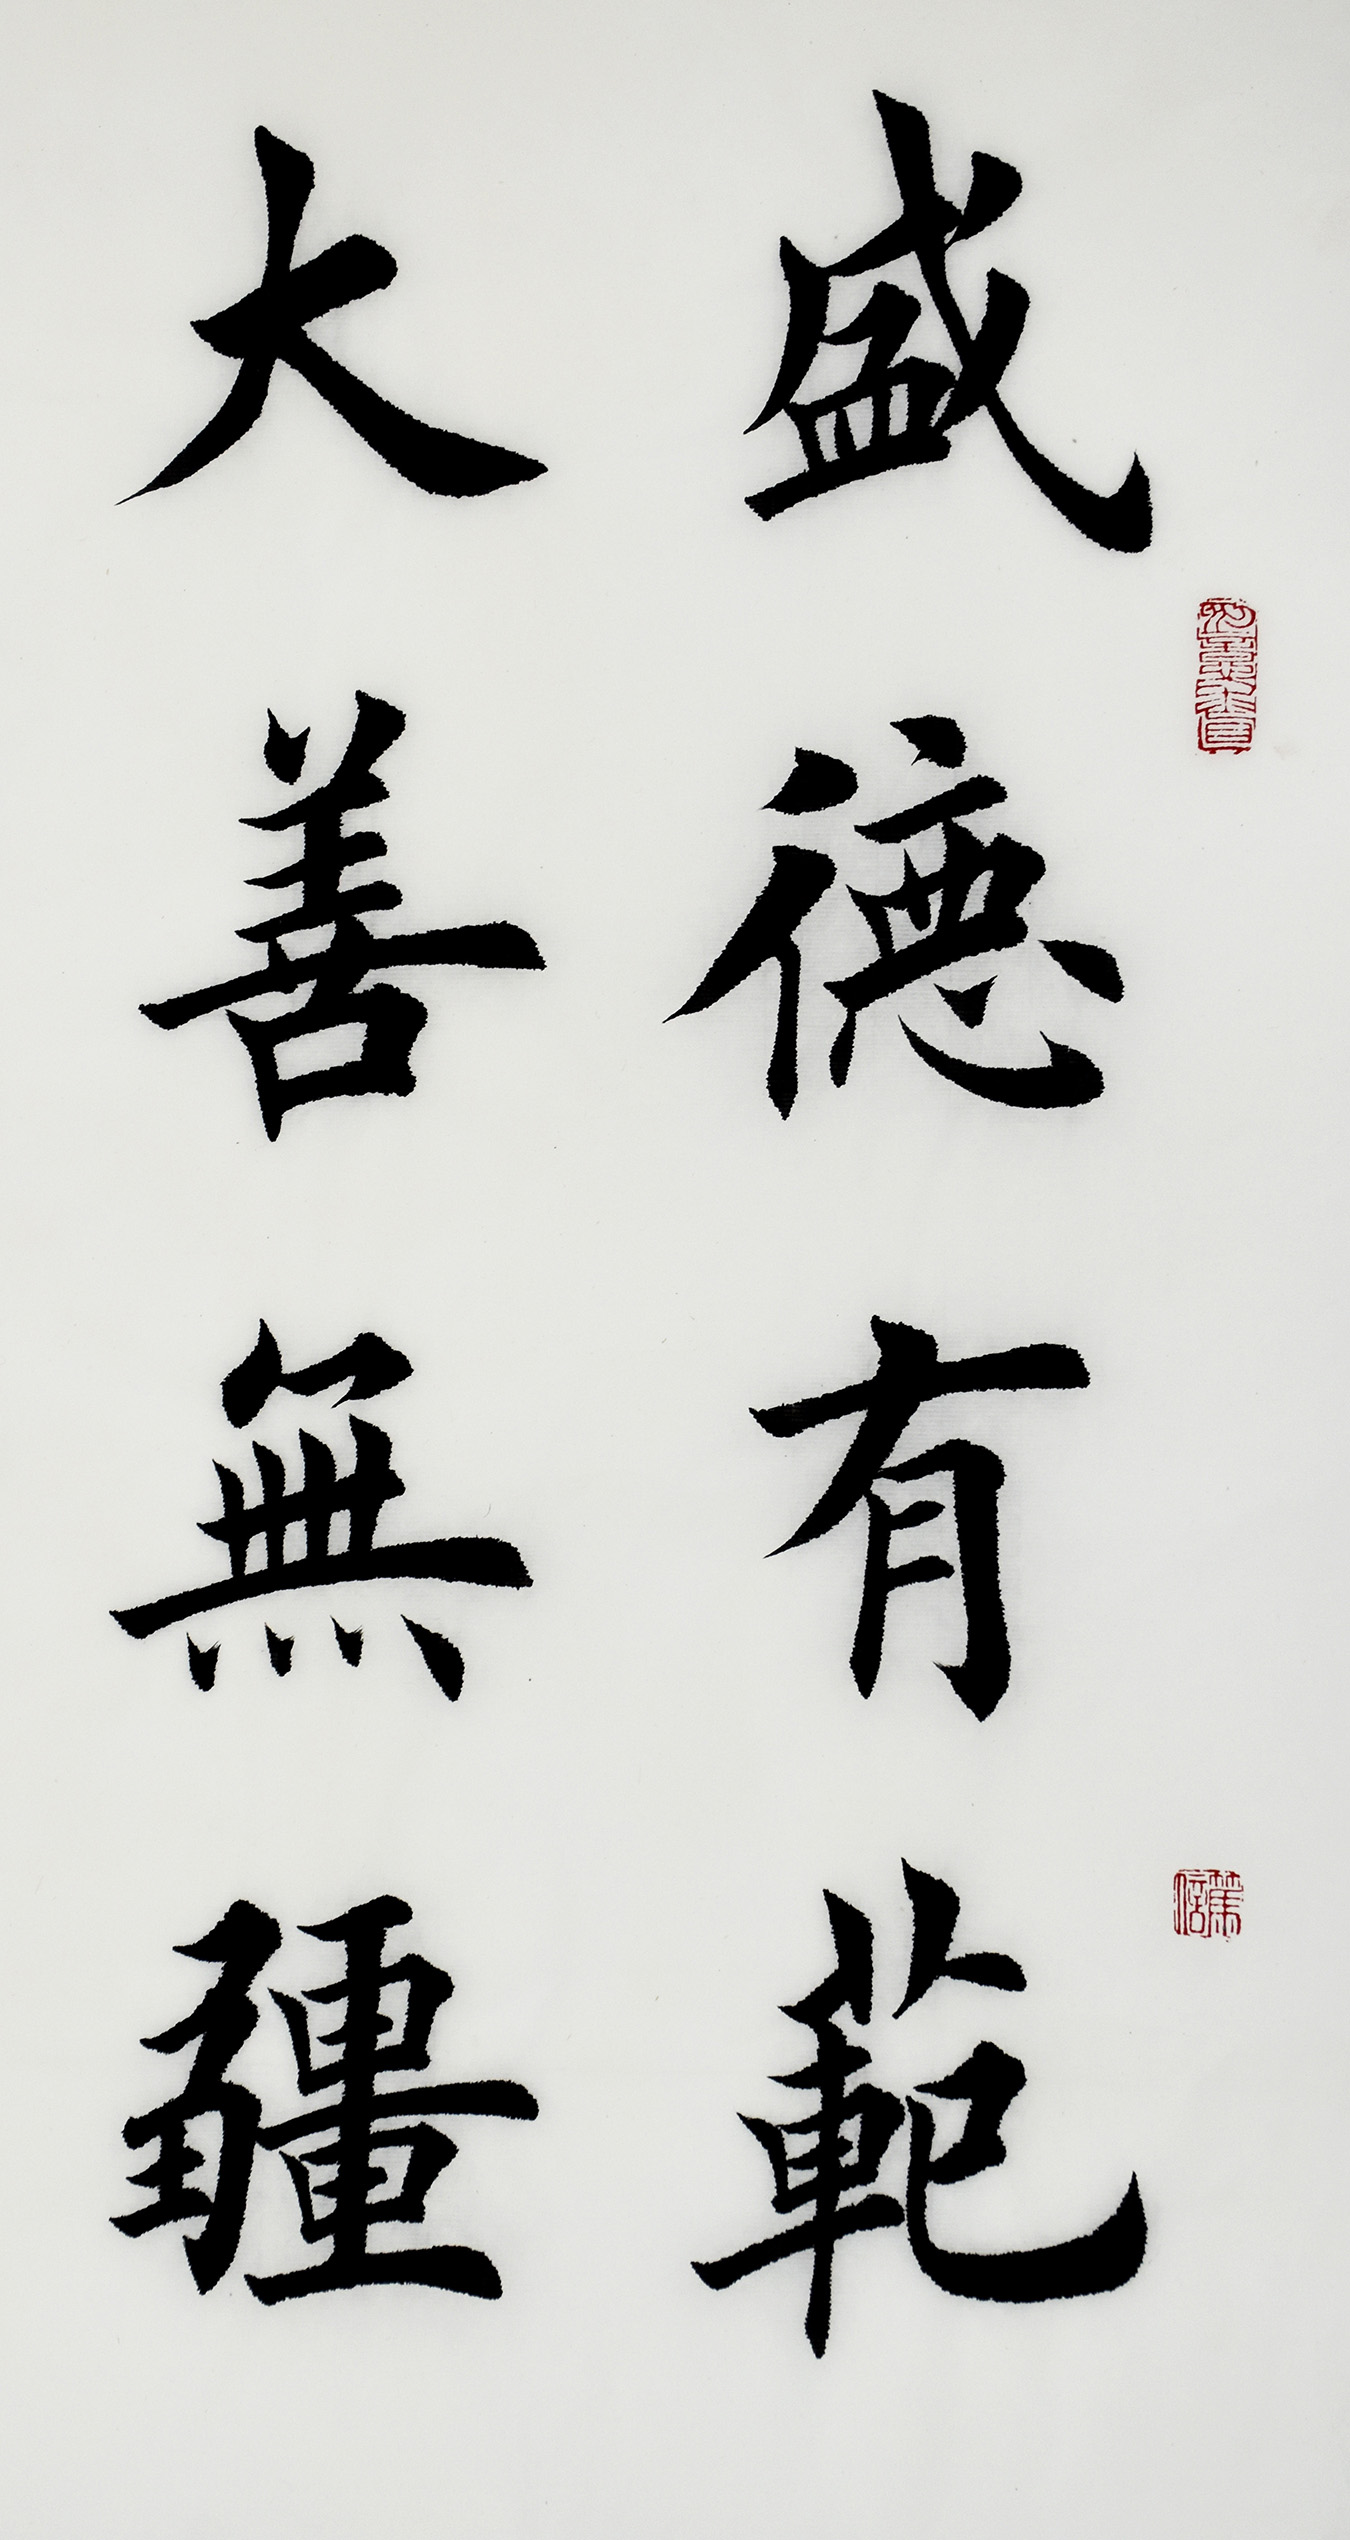 盛德有範
大善無疆